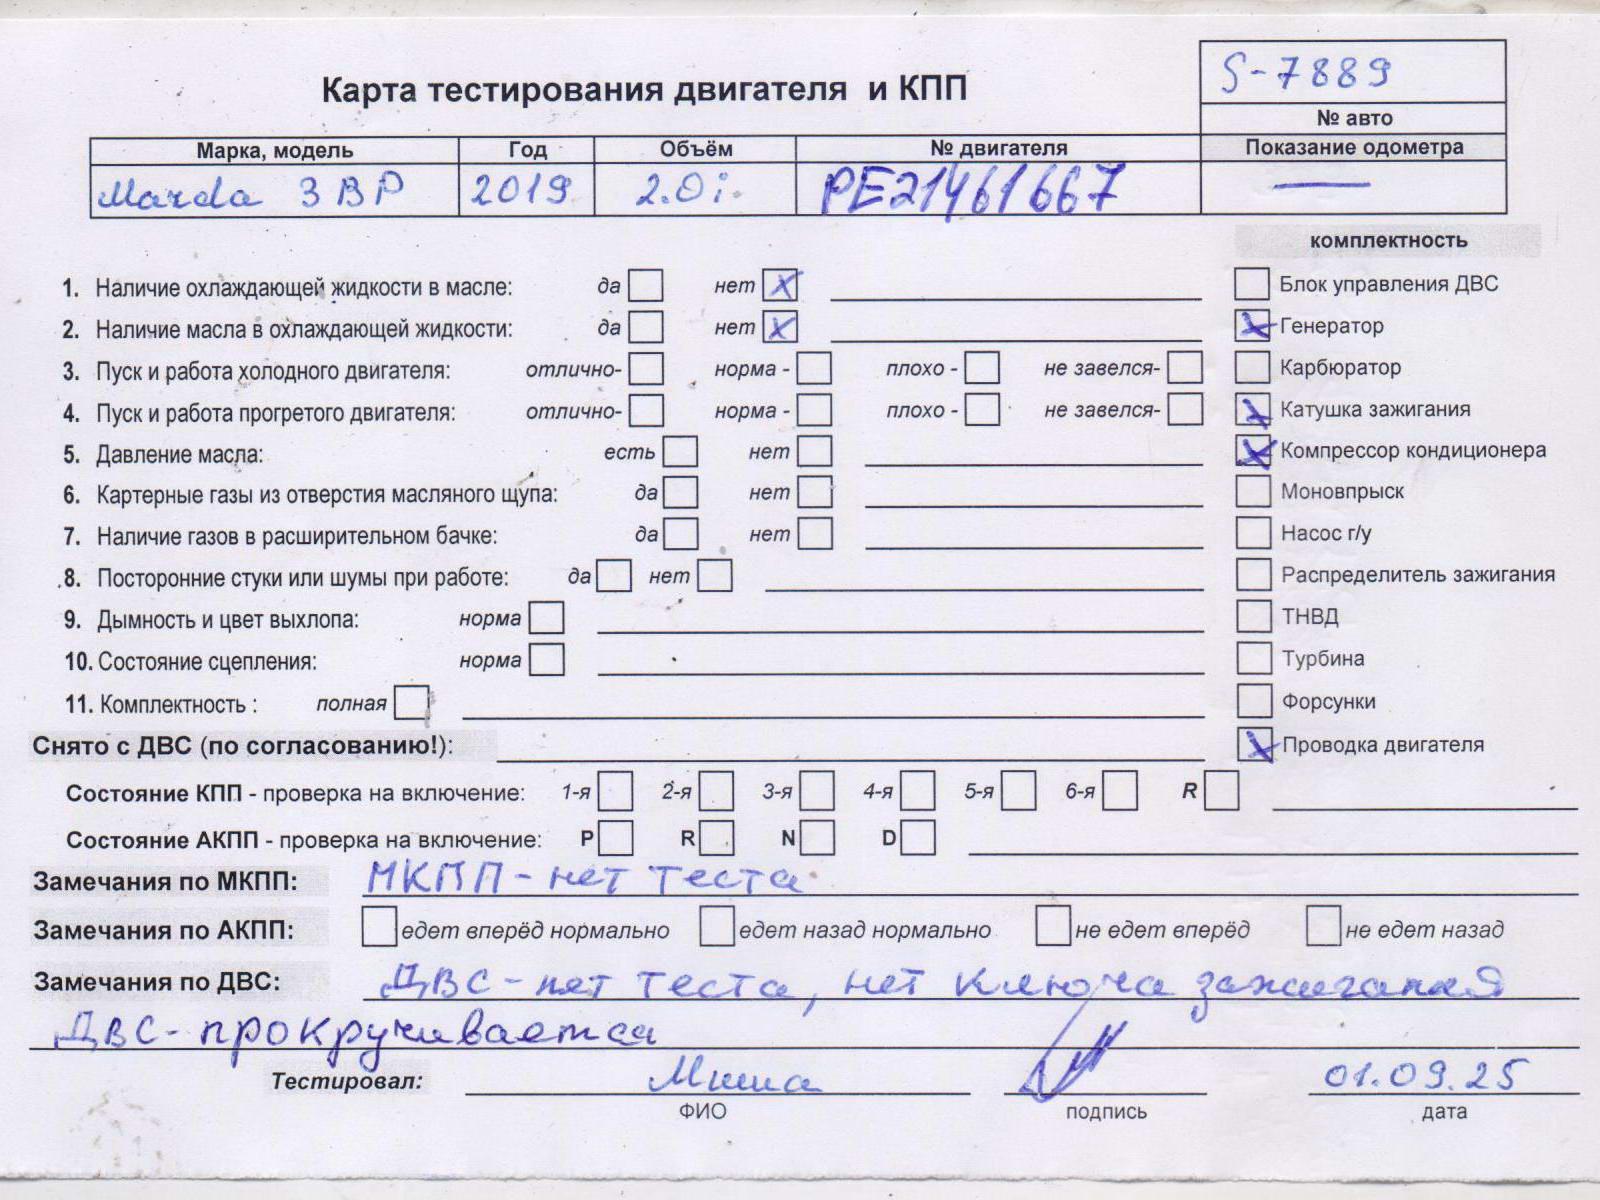 S-7889
Карта тестирования двигателя и КПП
№ авто
Марка, модель Год Объём № двигателя Показание одометра
Mazda 3 BP 2019 2.0i. PE21461667 —
комплектность
1. Наличие охлаждающей жидкости в масле: да нет X Блок управления ДВС
2. Наличие масла в охлаждающей жидкости: да нет X X Генератор
3. Пуск и работа холодного двигателя: отлично- норма - плохо - не завелся- Карбюратор
4. Пуск и работа прогретого двигателя: отлично- норма - плохо - не завелся- X Катушка зажигания
5. Давление масла: есть нет X Компрессор кондиционера
6. Картерные газы из отверстия масляного щупа: да нет Моновпрыск
7. Наличие газов в расширительном бачке: да нет Насос г/у
8. Посторонние стуки или шумы при работе: да нет Распределитель зажигания
9. Дымность и цвет выхлопа: норма ТНВД
10. Состояние сцепления: норма Турбина
11. Комплектность : полная Форсунки
Снято с ДВС (по согласованию!): X Проводка двигателя
Состояние КПП - проверка на включение: 1-я 2-я 3-я 4-я 5-я 6-я R
Состояние АКПП - проверка на включение: P R N D
Замечания по МКПП: МКПП - нет теста
Замечания по АКПП: едет вперёд нормально едет назад нормально не едет вперёд не едет назад
Замечания по ДВС: ДВС - нет теста, нет ключа зажигания
ДВС - прокручивается
Тестировал: Миша 01.09.25
ФИО подпись дата